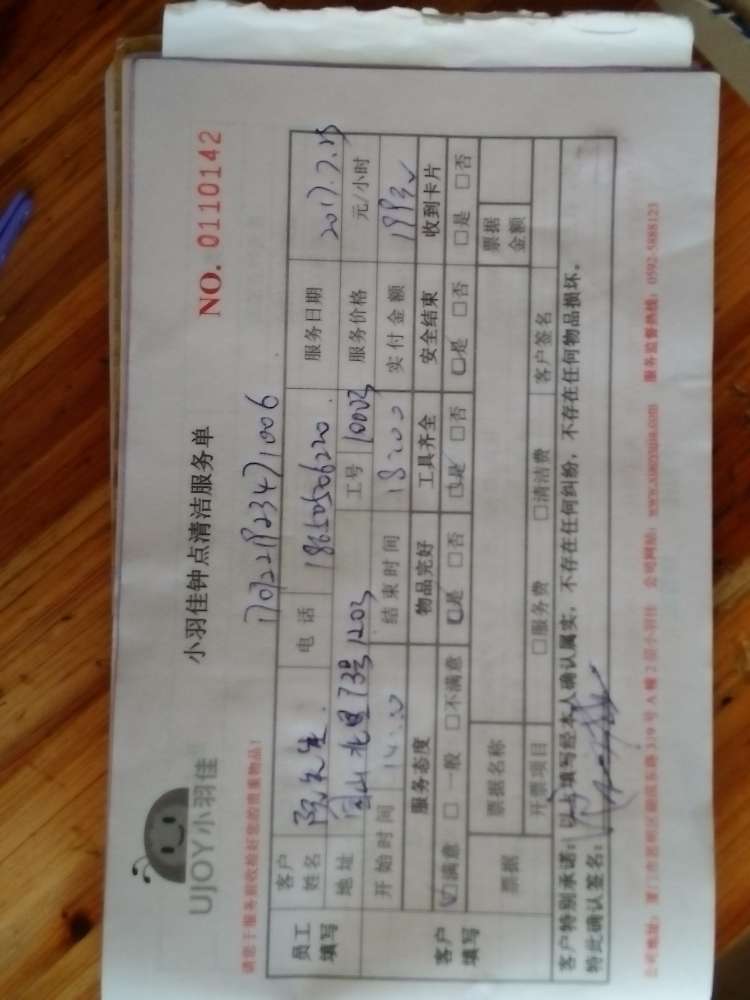 UJOY小羽佳
小羽佳钟点清洁服务单
NO. 0110142
请您于服务前收检好您的贵重物品!
员工填写
客户姓名
先生
电话
18650506220
服务日期
2017.7.25
地址
北里73号1203
工号
10003
服务价格
元/小时
开始时间
14:00
结束时间
18:00
实付金额
客户填写
服务态度
物品完好
工具齐全
安全结束
收到卡片
☑满意 □一般 □不满意
□是 □否
□是 □否
□是 □否
□是 □否
票据
票据名称
票据金额
开票项目
□服务费 □清洁费
客户签名
客户特别承诺:以上填写经本人确认属实,不存在任何纠纷,不存在任何物品损坏。
特此确认签名:
公司地址:厦门市思明区湖滨东路319号A幢2层小羽佳 公司网站:www.xiaoyujia.com 服务监督热线:0592-5888123